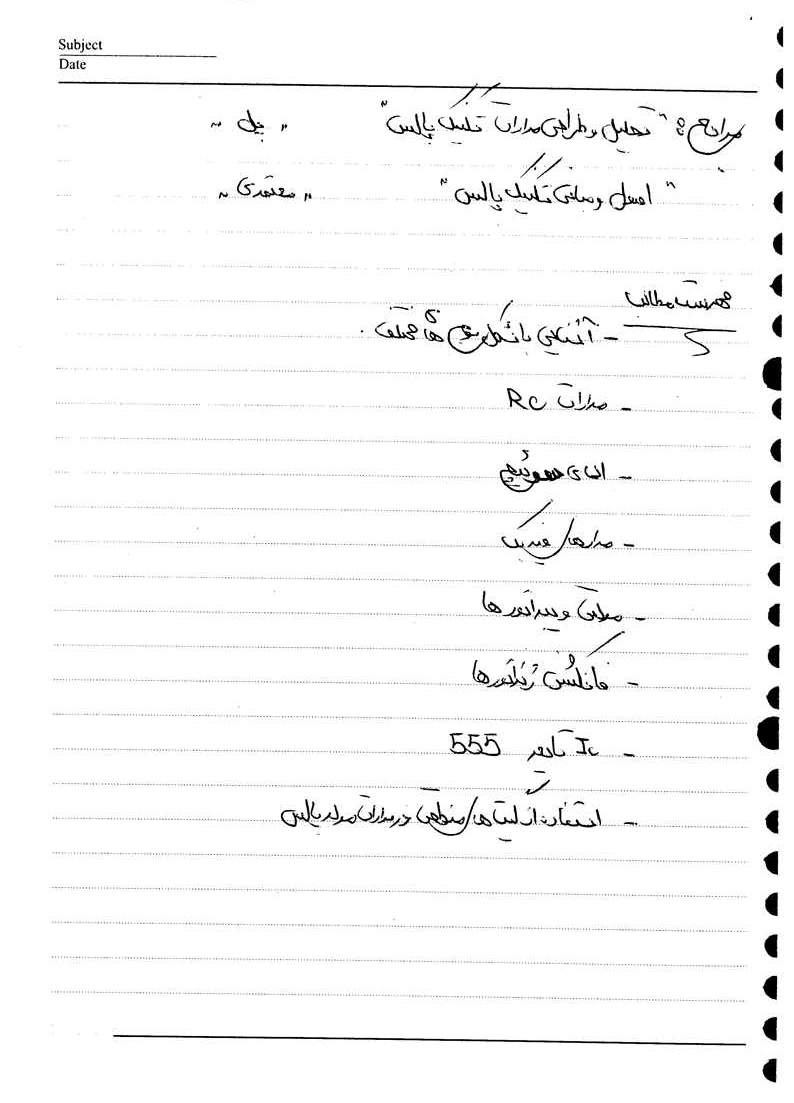 Subject
Date
مراجع : " تحلیل و طراحی مدارات تکنیک پالس " " بل "
" اصول و مبانی تکنیک پالس " " معتمدی "
فهرست مطالب
- آشنایی با شکل موج های مختلف .
- مدارات RC
- انواع سوئیچ
- مدارهای فیدبک
- مولتی ویبراتورها
- فانکشن ژنراتورها
- Ic تایمر 555
- استفاده از گیت های منطقی در مدارات مولد پالس